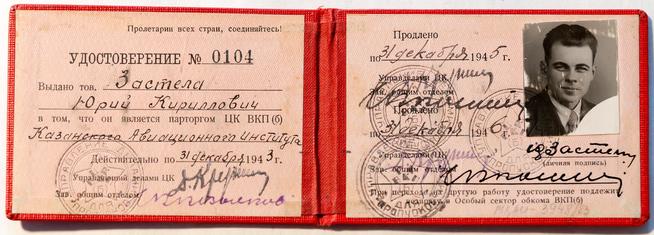 Пролетарии всех стран, соединяйтесь!
УДОСТОВЕРЕНИЕ № 0104
Выдано тов. Застела
Юрий Кириллович
в том, что он является парторгом ЦК ВКП(б)
Казанского Авиационного Института
Действительно по 31 декабря 1943 г.
Управляющий делами ЦК
Зав. общим отделом
Продлено
по 31 декабря 1945 г.
Управделами ЦК
Зав. общим отделом
Продлено
по 31 декабря 194
Зав. общим отделом
(личная подпись)
При переходе на другую работу удостоверение подлежит
возврату в Особый сектор обкома ВКП(б)